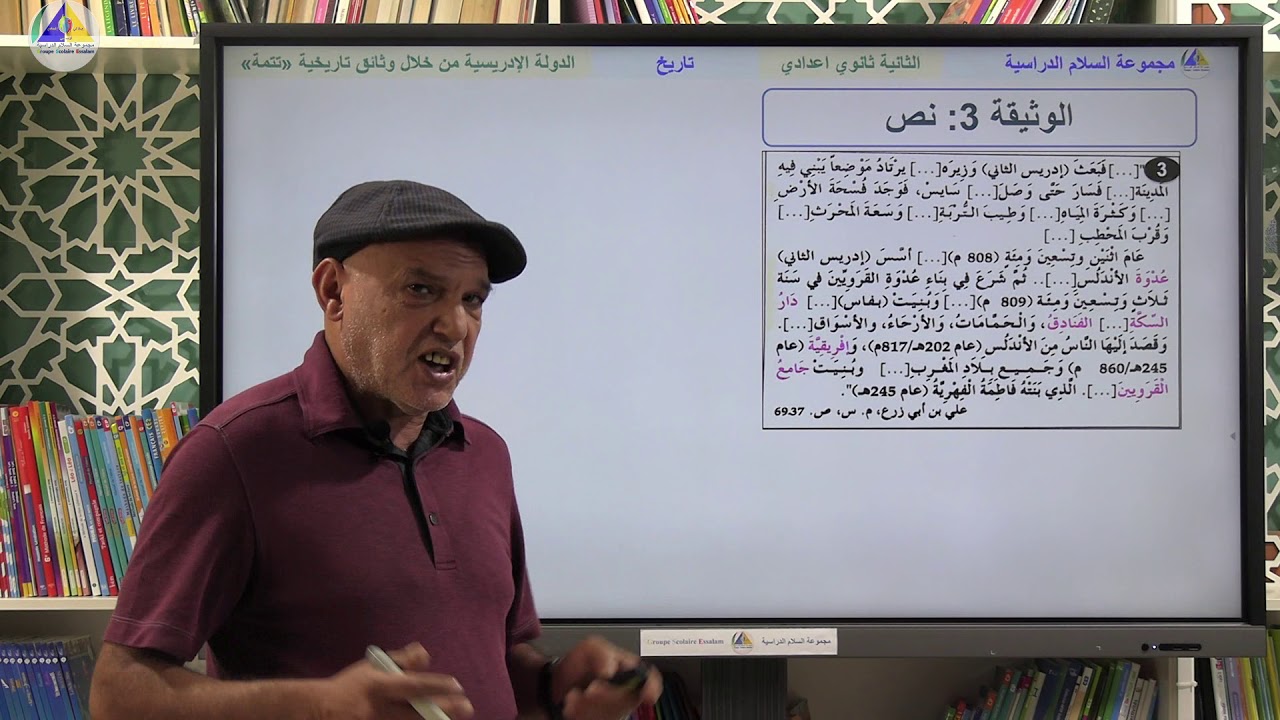 مجموعة السلام الدراسية
Groupe Scolaire Essalam
مجموعة السلام الدراسية
الثانية ثانوي اعدادي
تاريخ
الدولة الإدريسية من خلال وثائق تاريخية «تتمة»
الوثيقة 3: نص
3
"[...] فَبَعَثَ (إدريس الثاني) وَزِيرَه[...] يرْتَادُ مَوْضِعاً يَبْنِي فِيهِ
المَدِينَة[...] فَسَارَ حَتَّى وَصَلَ[...] سَايسْ، فَوَجَدَ فُسْحَةَ الأَرْضِ
[...] وَكَثْرَةَ المِيَاه[...] وَطِيبَ التُّرْبَةِ[...] وَسَعَةَ المَحْرَث[...]
وَقُرْبَ المَحْطَبِ [...]
عَامَ اثْنَيْنِ وتِسْعِينَ وَمِئَةٍ (808 م)[...] أسَّسَ (إدريس الثاني)
عُدْوَةَ الأَنْدَلُس[...].. ثُمَّ شَرَعَ فِي بِنَاءِ عُدْوَةِ القَرَوِيِّينَ فِي سَنَة
ثَلَاثٍ وَتِسْعِينَ وَمِئَة (809 م)[...] وَبُنِيَتْ (بفاس)[...] دَارُ
السِّكَّةِ[...] الفَنَادِقُ، وَالْحَمَّامَاتُ، وَالأَرْحَاءُ، والأَسْوَاق[...].
وَقَصَدَ إلَيْهَا النَّاسُ مِنَ الأَنْدَلُس (عام 202هـ/817م)، وَإفْرِيقيَّة (عام
245هـ/860 م) وَجَمِيعِ بِلَادِ المَغْرِب[...] وبُنِيَتْ جَامِعُ
الْقَرَوِيينَ[...]. الَّذِي بَنَتْهُ فَاطِمَةُ الْفِهْرِيَّةُ (عام 245هـ)".
علي بن أبي زرع، م. س، ص. 69.37
Groupe Scolaire Essalam مجموعة السلام الدراسية